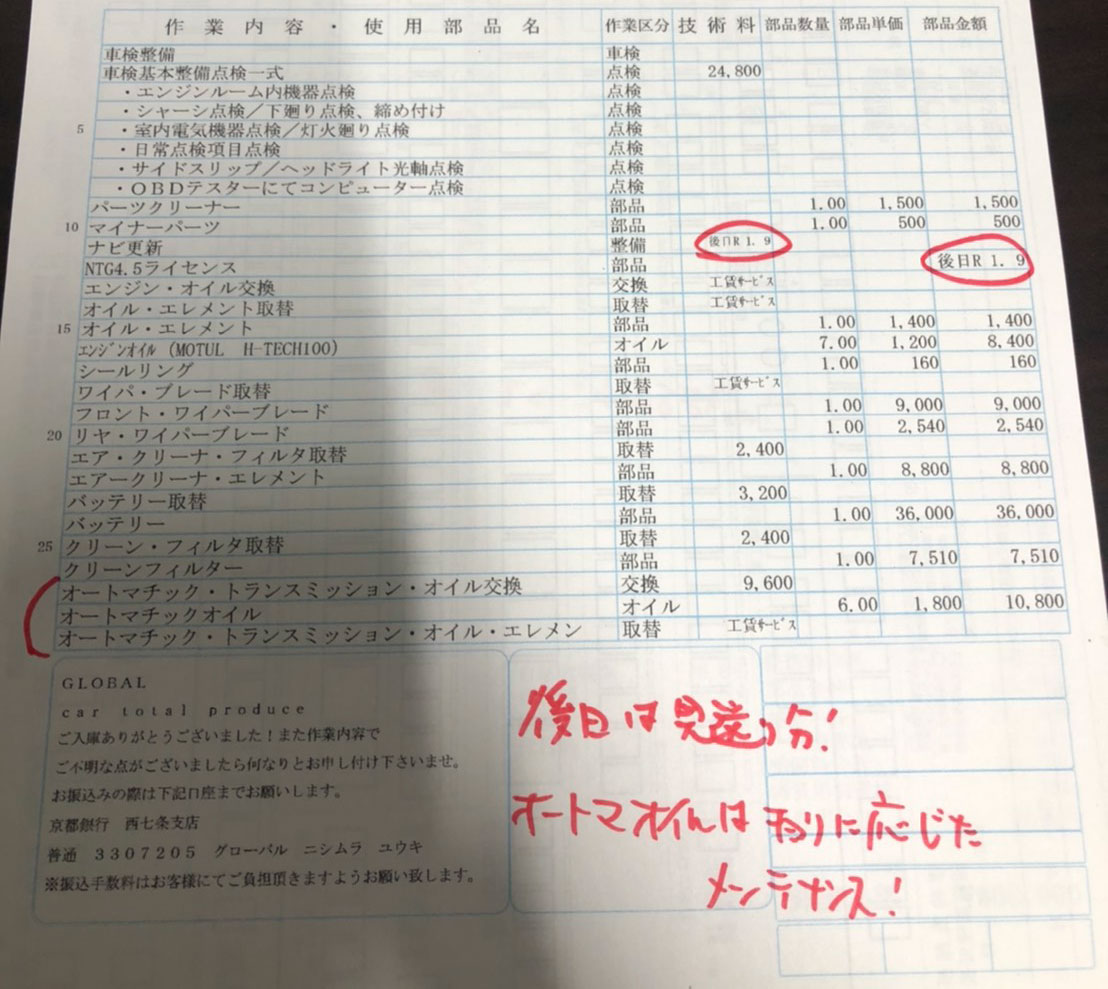 作業内容・使用部品名 作業区分 技術料 部品数量 部品単価 部品金額
車検整備 車検
車検基本整備点検一式 点検 24,800
・エンジンルーム内機器点検 点検
・シャーシ点検／下廻り点検、締め付け 点検
5 ・室内電気機器点検／灯火廻り点検 点検
・日常点検項目点検 点検
・サイドスリップ／ヘッドライト光軸点検 点検
・OBDテスターにてコンピューター点検 点検
パーツクリーナー 部品 1.00 1,500 1,500
10 マイナーパーツ 部品 1.00 500 500
ナビ更新 整備 後日R1.9
NTG4.5ライセンス 部品 後日R1.9
エンジン・オイル交換 交換 工賃ｻｰﾋﾞｽ
オイル・エレメント取替 取替 工賃ｻｰﾋﾞｽ
15 オイル・エレメント 部品 1.00 1,400 1,400
ｴﾝｼﾞﾝｵｲﾙ (MOTUL H-TECH100) オイル 7.00 1,200 8,400
シールリング 部品 1.00 160 160
ワイパ・ブレード取替 取替 工賃ｻｰﾋﾞｽ
フロント・ワイパーブレード 部品 1.00 9,000 9,000
20 リヤ・ワイパーブレード 部品 1.00 2,540 2,540
エア・クリーナ・フィルタ取替 取替 2,400
エアークリーナ・エレメント 部品 1.00 8,800 8,800
バッテリー取替 取替 3,200
バッテリー 部品 1.00 36,000 36,000
25 クリーン・フィルタ取替 取替 2,400
クリーンフィルター 部品 1.00 7,510 7,510
オートマチック・トランスミッション・オイル交換 交換 9,600
オートマチックオイル オイル 6.00 1,800 10,800
オートマチック・トランスミッション・オイル・エレメン 取替 工賃ｻｰﾋﾞｽ
GLOBAL
car total produce
ご入庫ありがとうございました！また作業内容で
ご不明な点がございましたら何なりとお申し付け下さいませ。
お振込みの際は下記口座までお願いします。
京都銀行 西七条支店
普通 3307205 グローバル ニシムラ ユウキ
※振込手数料はお客様にてご負担頂きますようお願い致します。
後日は見送り分！
オートマオイルは
に応じた
メンテナンス！